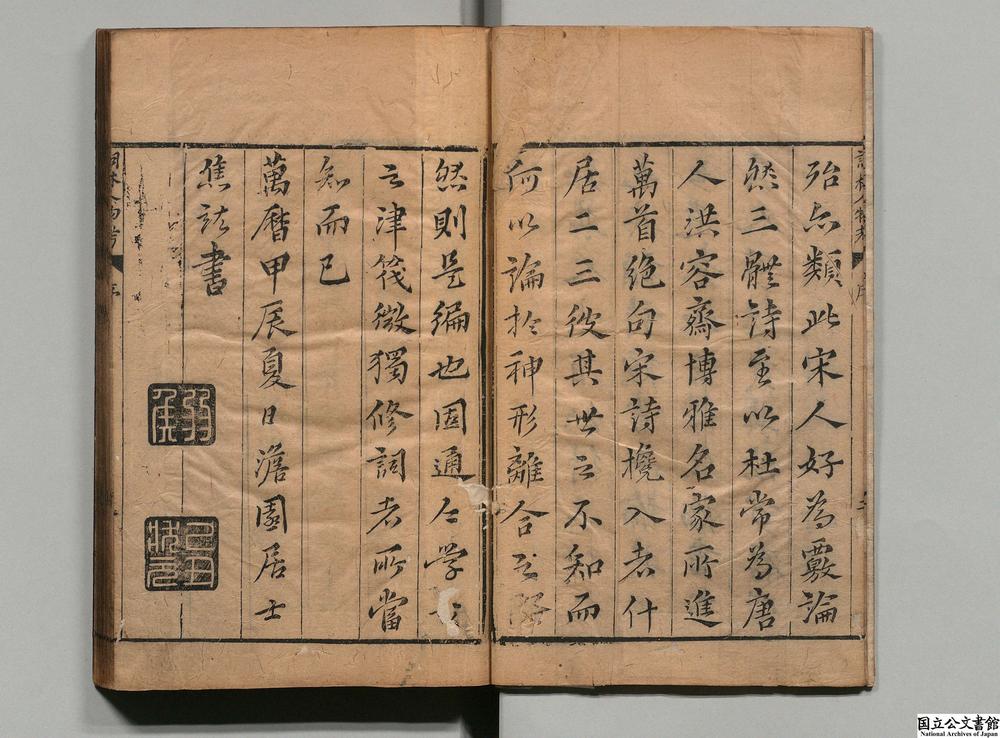 殆亦類此宋人好為覈論
然三體詩至以杜常為唐
人洪容齋博雅名家所進
萬首絶句宋詩攙入者什
居二三彼其世之不知而
何以論於神形離合之
然則是編也固通人學士
之津筏微獨修詞者所當
知而已
萬曆甲辰夏日澹園居士
焦竑書
弱侯
国立公文書館
National Archives of Japan